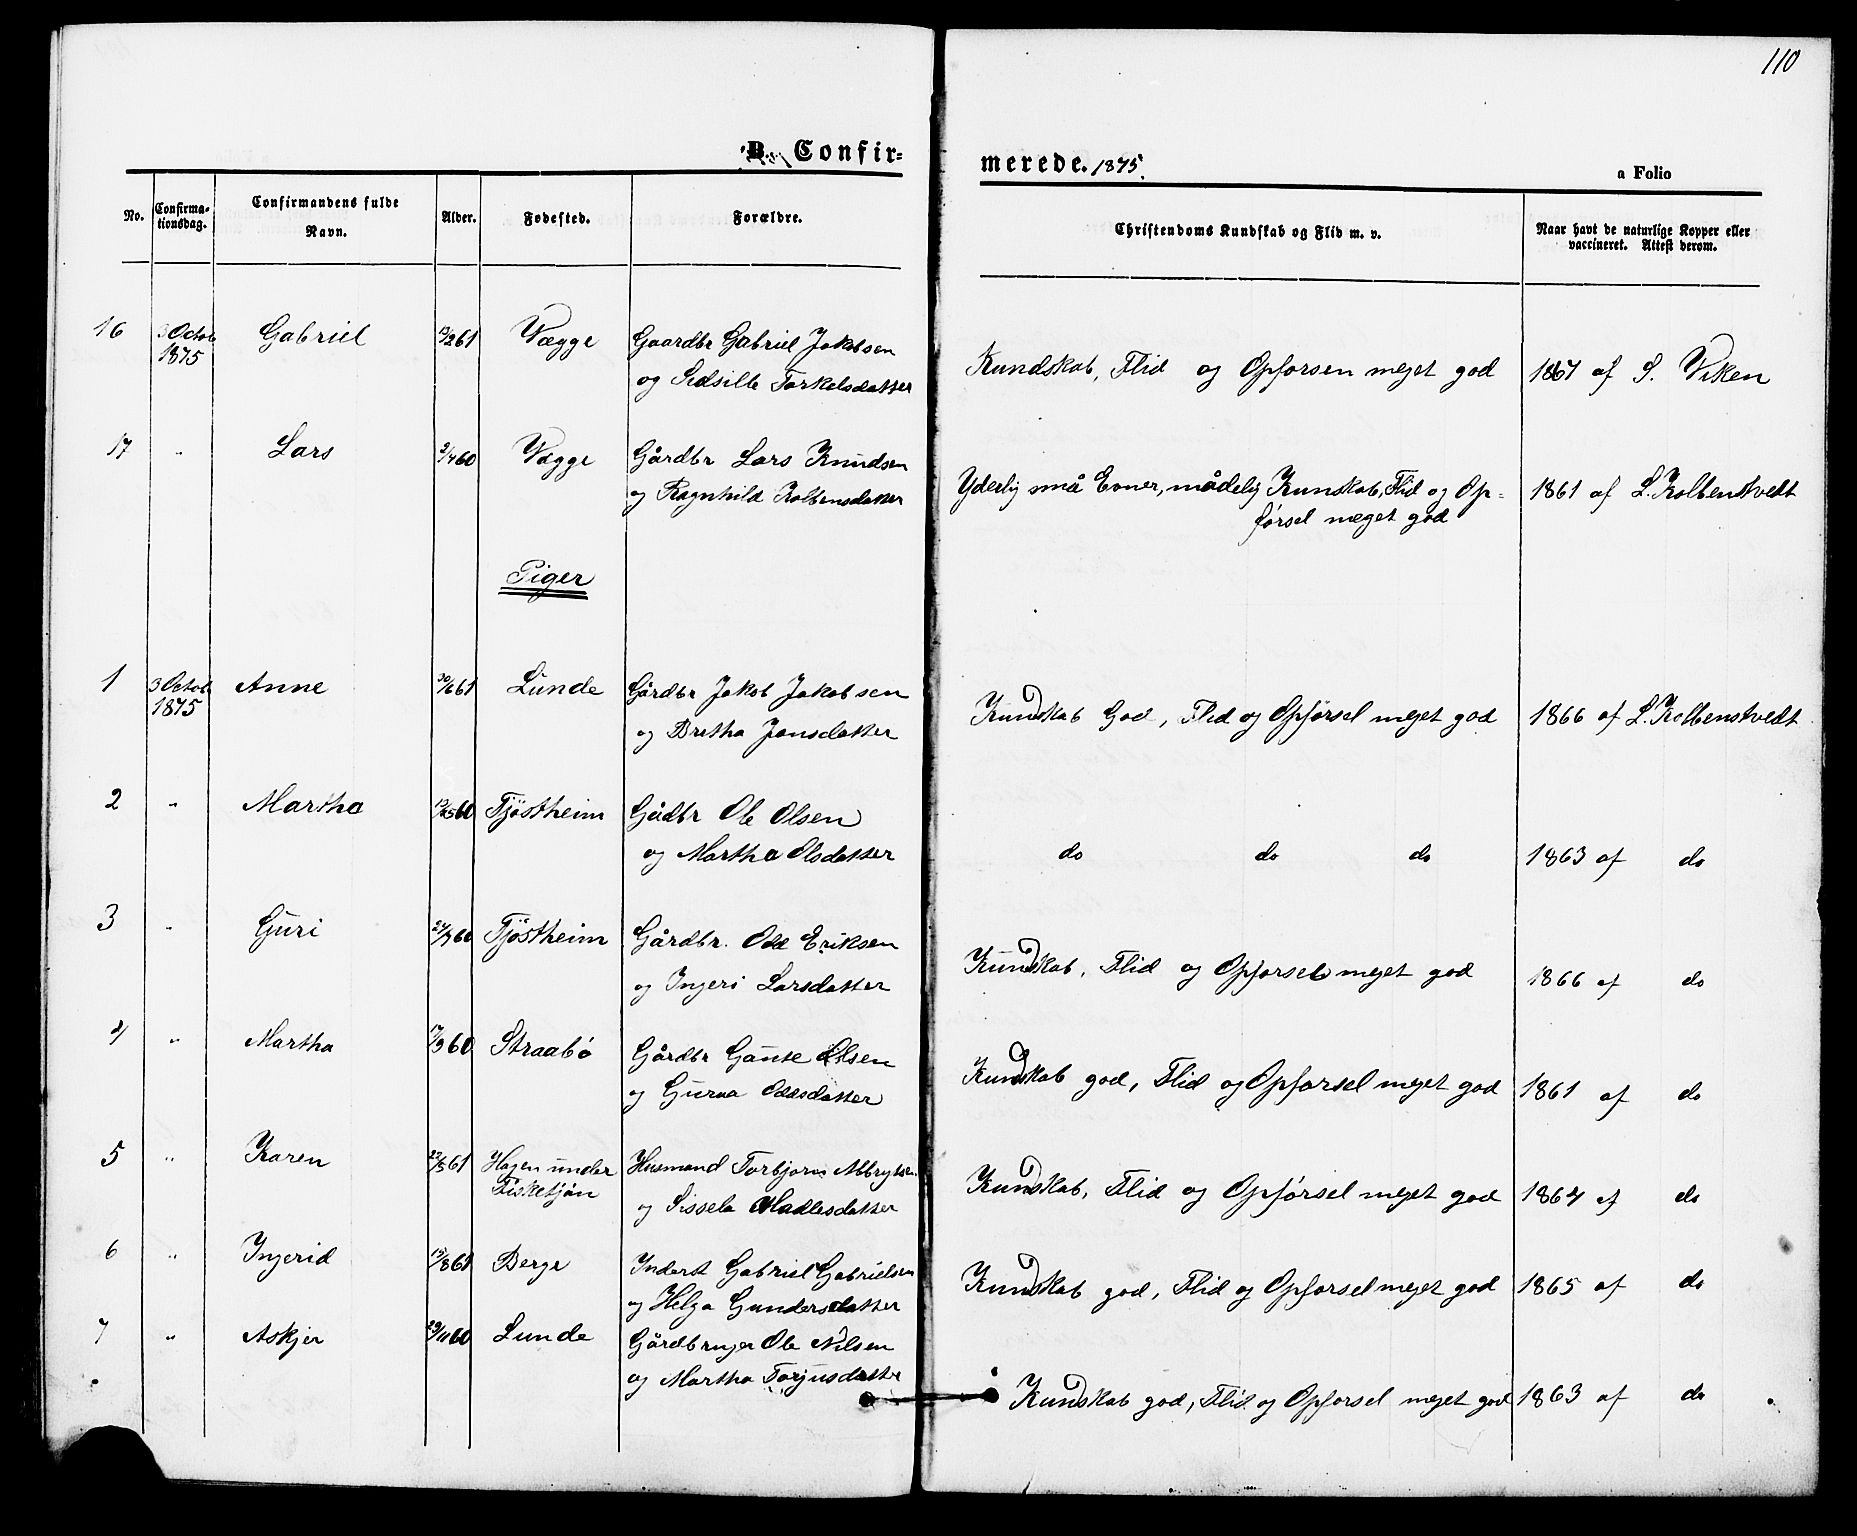 110
B. Confirmerede. 1875.
a Folio
No.
Confirmationsdag.
Confirmandens fulde Navn.
Alder.
Fødested.
Forældre.
Christendoms Kundskab og Flid m. v.
Naar havt de naturlige Kopper eller vaccineret. Attest derom.
16 3 Octob 1875 Gabriel 61 Vægge Gaardbr Gabriel Jakobsen
og Sidsille Torkelsdatter
Kundskab, Flid og Opførsen meget god 1867 af S. Viken
17 " Lars 2/4 60 Vægge Gårdbr Lars Knudsen
og Ragnhild Kolbensdatter
Yderlig små Evner, mådelig Kunskab, Flid og Op-
førsel meget god
1861 af L. Kolbenstvedt
Piger
1 3 Octob 1875 Anne 30/6 61 Lunde Gårdbr Jakob Jakobsen
og Bretha Jonsdatter
Kundskab God, Flid og Opførsel meget god 1866 af L. Kolbenstvedt
2 " Martha 60 Tjøstheim Gådbr Ole Olsen
og Martha Olsdatter
do do do 1863 af do
3 " Guri 60 Tjøstheim Gårdbr. Odd Eriksen
og Ingeri Larsdatter
Kundskab, Flid og Opførsel meget god 1866 af do
4 " Martha 17/9 60 Straabø Gårdbr Gunte Olsen
og Guroa Oddsdatter
Kundskab god, Flid og Opførsel meget god 1861 af do
5 " Karen 22/5 61 Hagen under Fisketjøn Husmand Torbjorn
og Sissela Madlesdatter
Kundskab, Flid og Opførsel meget god 1864 af do
6 " Ingerid 61 Berge Inderst Gabriel Gabrielsen
og Helga Gundersdatter
Kundskab god, Flid og Opførsel meget god 1865 af do
7 " Askjer 29/11 60 Lunde Gårdbruger Ole Nilsen
og Martha Torjusdatter
Kundskab god, Flid og Opførsel meget god 1863 af do